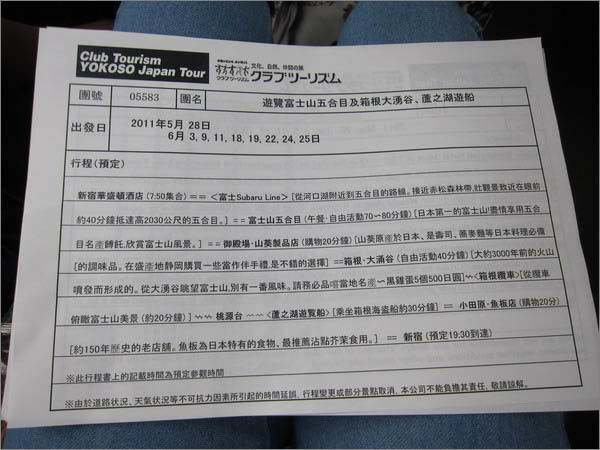 Club Tourism
YOKOSO Japan Tour
文化、自然、仲間の旅
クラブツーリズム クラブツーリズム
團號 05583 團名 遊覽富士山五合目及箱根大湧谷、蘆之湖遊船
出發日 2011年5月 28日
6月 3, 9, 11, 18, 19, 22, 24, 25日
行程(預定)
新宿華盛頓酒店 (7:50集合) == <富士Subaru Line> [從河口湖附近到五合目的路線。接近赤松森林帶,壯觀景致近在眼前
約40分鐘抵達高2030公尺的五合目。] == 富士山五合目 (午餐‧自由活動70～80分鐘) [日本第一的富士山!盡情享用五合
目名產餺飥,欣賞富士山風景。] == 御殿場‧山葵製品店 (購物20分鐘) [山葵原產於日本、是壽司、蕎麥麵等日本料理必備
的調味品。在盛產地静岡購買一些當作伴手禮,是不錯的選擇] ==箱根‧大湧谷 (自由活動40分鐘) [大約3000年前的火山
噴發而形成的。從大湧谷眺望富士山,別有一番風味。請務必品嚐當地名產～黑雞蛋5個500日圓]~~<箱根纜車>[從纜車
俯瞰富士山美景 (約20分鐘)] ~~ 桃源台 ~~ <蘆之湖遊覧船> [乘坐箱根海盜船約30分鐘] == 小田原‧魚板店 (購物20分)
[約150年歷史的老店舖。魚板為日本特有的食物、最推薦沾點芥茉食用。] == 新宿 (預定19:30到達)
※此行程書上的記載時間為預定參觀時間
※由於道路状況、天氣状況等不可抗力因素所引起的時間延誤, 行程變更或部分景點取消, 本公司不能負擔其責任, 敬請諒解。